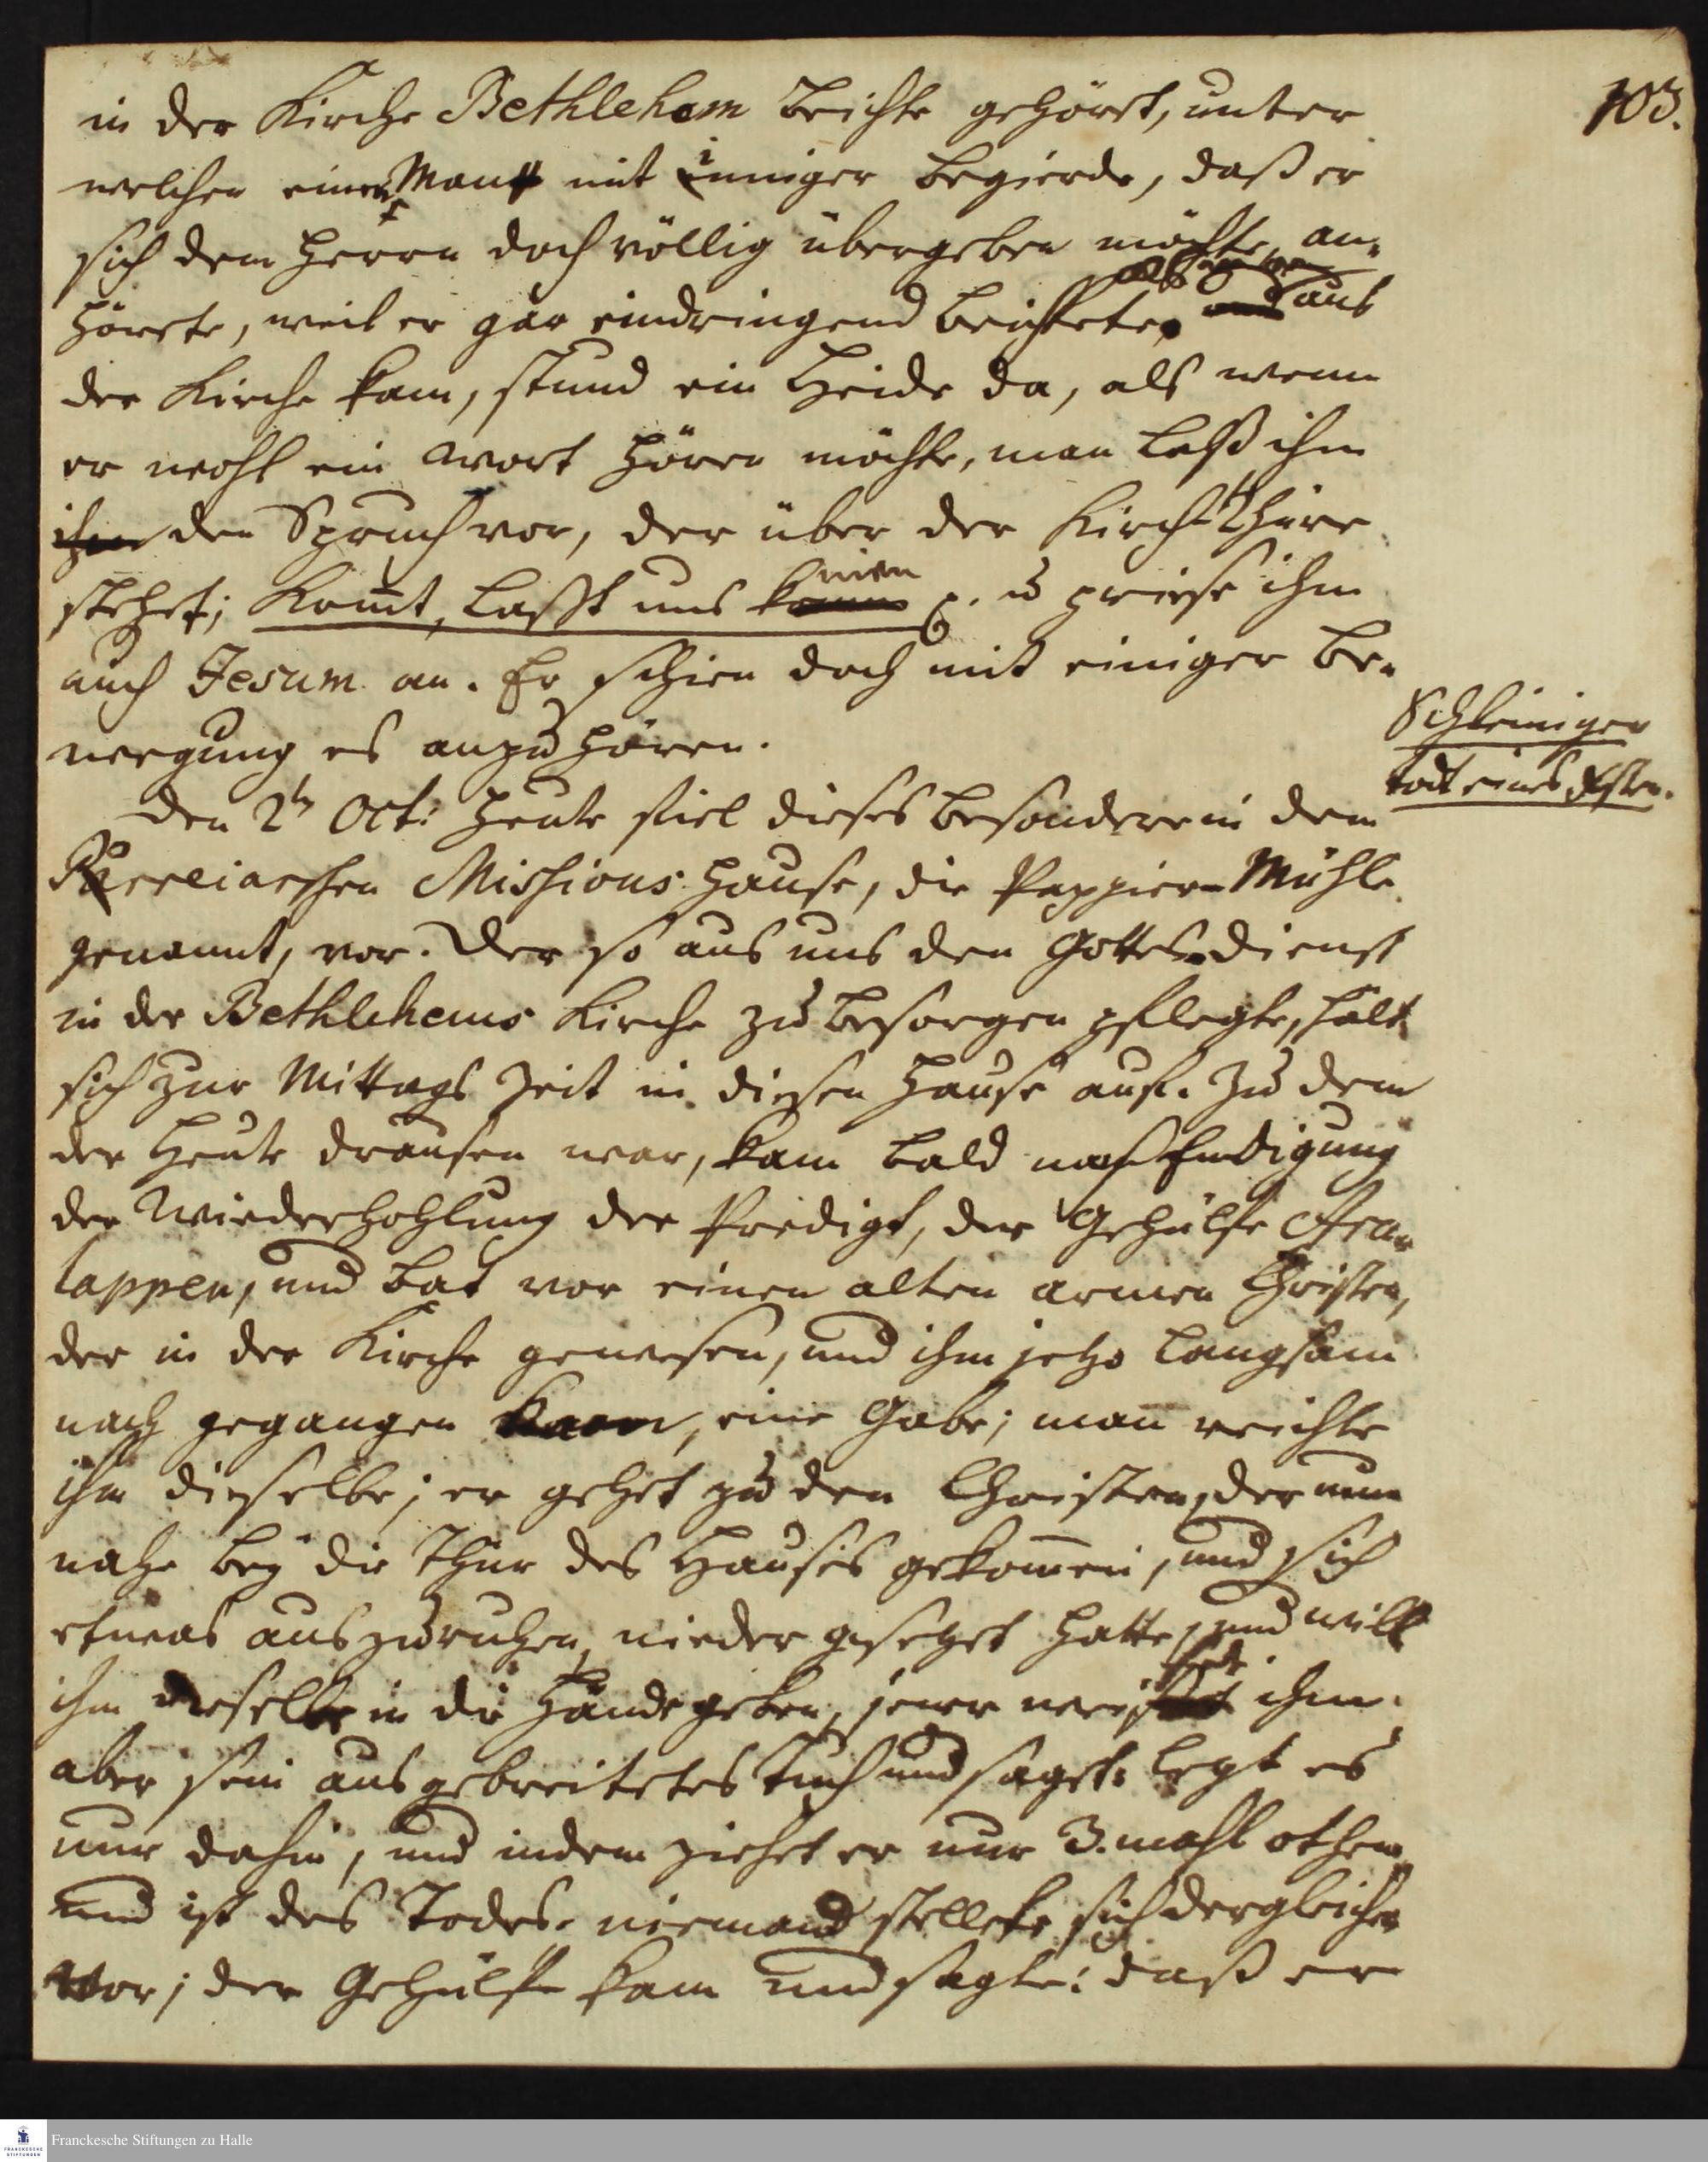 103.
in der Kirche Bethlehem beichte gehört, unter
welchen einen Mann mit inniger begierde, daß er
sich dem Herrn doch völlig übergeben möchte, an-
hörete, weil er gar eindringend beichtete, als aus
der Kirche kam, stund ein Heide da, als wenn
er wohl ein Wort hören möchte, man laß ihm
ihm den Spruch vor, der über der Kirch-Thüre
stehet; Komt, laßt uns knien p. u priese ihm
auch Jesum an. Er schien doch mit einiger Be-
wegung es anzuhören.
Schleiniger
todt eines Xsten.
Den 2ten Oct: Heute fiel dieses besondere in dem
Porreiarschen Missions-Hause, die Pappier-Mühle
genannt, vor. Der so aus uns den Gottesdienst
in der Bethlehems Kirche zu besorgen pflegte, hält
sich zur Mittags Zeit in diesen Hause auf. Zu dem
der Heute draussen war, kam bald nach Endigung
der Wiederhohlung der Predigt, der Gehülfe Aru-
lappen, und bat vor einen alten armen Christen,
der in der Kirche gewesen, und ihm jetzo langsam
nach gegangen kam, eine Gabe; man reichte
ihm dieselbe; er gehet zu den Christen, der nun
nahe bey die Thür des Hauses gekommen, und sich
etwas auszuruhen, nieder gesetzet hatte, und will
ihm dieselbe in die Hände geben, jener weisete ihm
aber sein ausgebreitetes Tuch und saget: legt es
nur dahin, und indem ziehet er nur 3. mahl othem
und ist des Todes. niemand stellete sich dergleichen
vor; der Gehülfe kam und sagte: daß er
Franckesche Stiftungen zu Halle